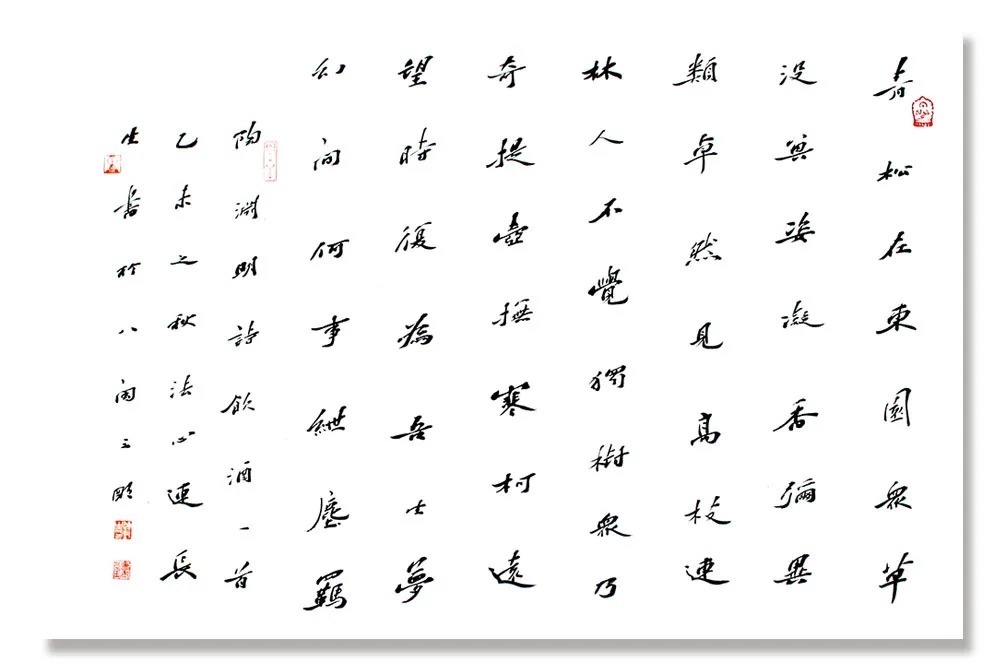 青松在東園衆草
没其姿凝香彌異
類卓然見高枝連
林人不覺獨樹衆乃
奇提壺撫寒柯遠
望時復為吾生夢
幻间何事紲塵羈
陶淵明詩飲酒一首
乙未之秋法心連長
生書於八闽三明